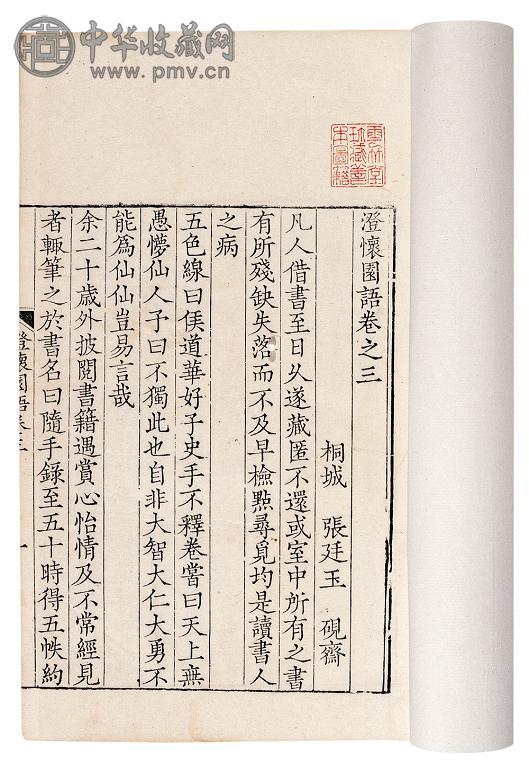 中华收藏网
www.pmv.cn
澄懷園語卷之三
桐城 張廷玉 硯齋
凡人借書至日久遂藏匿不還或室中所有之書
有所殘缺失落而不及早檢點尋覓均是讀書人
之病
五色線曰侯道華好子史手不釋卷嘗曰天上無
愚懜仙人予曰不獨此也自非大智大仁大勇不
能爲仙仙豈易言哉
余二十歲外披閱書籍遇賞心怡情及不常經見
者輒筆之於書名曰隨手錄至五十時得五帙約
澄懷園語卷三
一